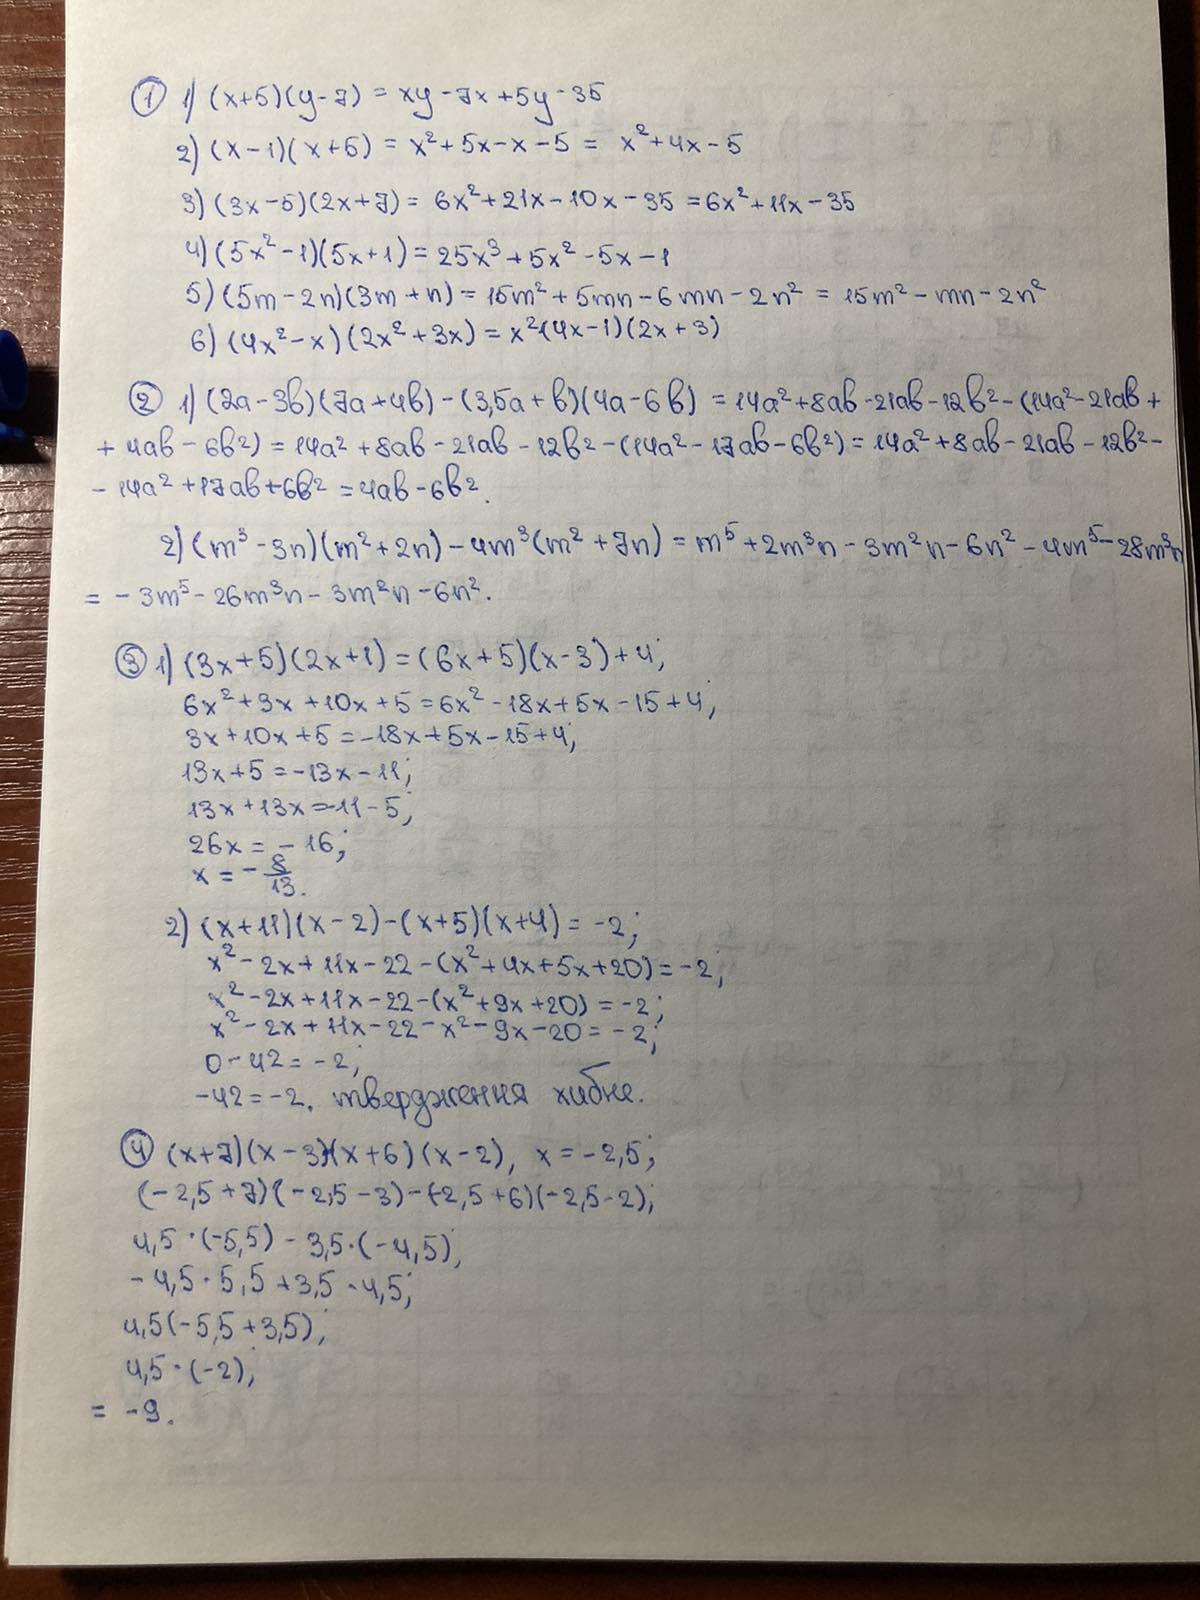 ① 1) (x+5)(y-7) = xy-7x+5y-35
2) (x-1)(x+5) = x²+5x-x-5 = x²+4x-5
3) (3x-5)(2x+7) = 6x²+21x-10x-35 = 6x²+11x-35
4) (5x²-1)(5x+1) = 25x³+5x²-5x-1
5) (5m-2n)(3m+n) = 15m²+5mn-6mn-2n² = 15m²-mn-2n²
6) (4x²-x)(2x²+3x) = x²(4x-1)(2x+3)
② 1) (2a-3b)(7a+4b)-(3,5a+b)(4a-6b) = 14a²+8ab-21ab-12b²-(14a²-21ab+
+4ab-6b²) = 14a²+8ab-21ab-12b²-(14a²-17ab-6b²) = 14a²+8ab-21ab-12b²-
-14a²+17ab+6b² = 4ab-6b².
2) (m³-3n)(m²+2n)-4m³(m²+7n) = m⁵+2m³n-3m²n-6n²-4m⁵-28m³n
= -3m⁵-26m³n-3m²n-6n².
③ 1) (3x+5)(2x+1) = (6x+5)(x-3)+4;
6x²+3x+10x+5 = 6x²-18x+5x-15+4;
3x+10x+5 = -18x+5x-15+4;
13x+5 = -13x-11;
13x+13x = -11-5;
26x = -16;
x = -8/13.
2) (x+11)(x-2)-(x+5)(x+4) = -2;
x²-2x+11x-22-(x²+4x+5x+20) = -2;
x²-2x+11x-22-(x²+9x+20) = -2;
x²-2x+11x-22-x²-9x-20 = -2;
0-42 = -2;
-42 = -2. твердження хибне.
④ (x+7)(x-3)-(x+6)(x-2), x = -2,5;
(-2,5+7)(-2,5-3)-(-2,5+6)(-2,5-2);
4,5·(-5,5)-3,5·(-4,5);
-4,5·5,5+3,5·4,5;
4,5(-5,5+3,5);
4,5·(-2);
= -9.